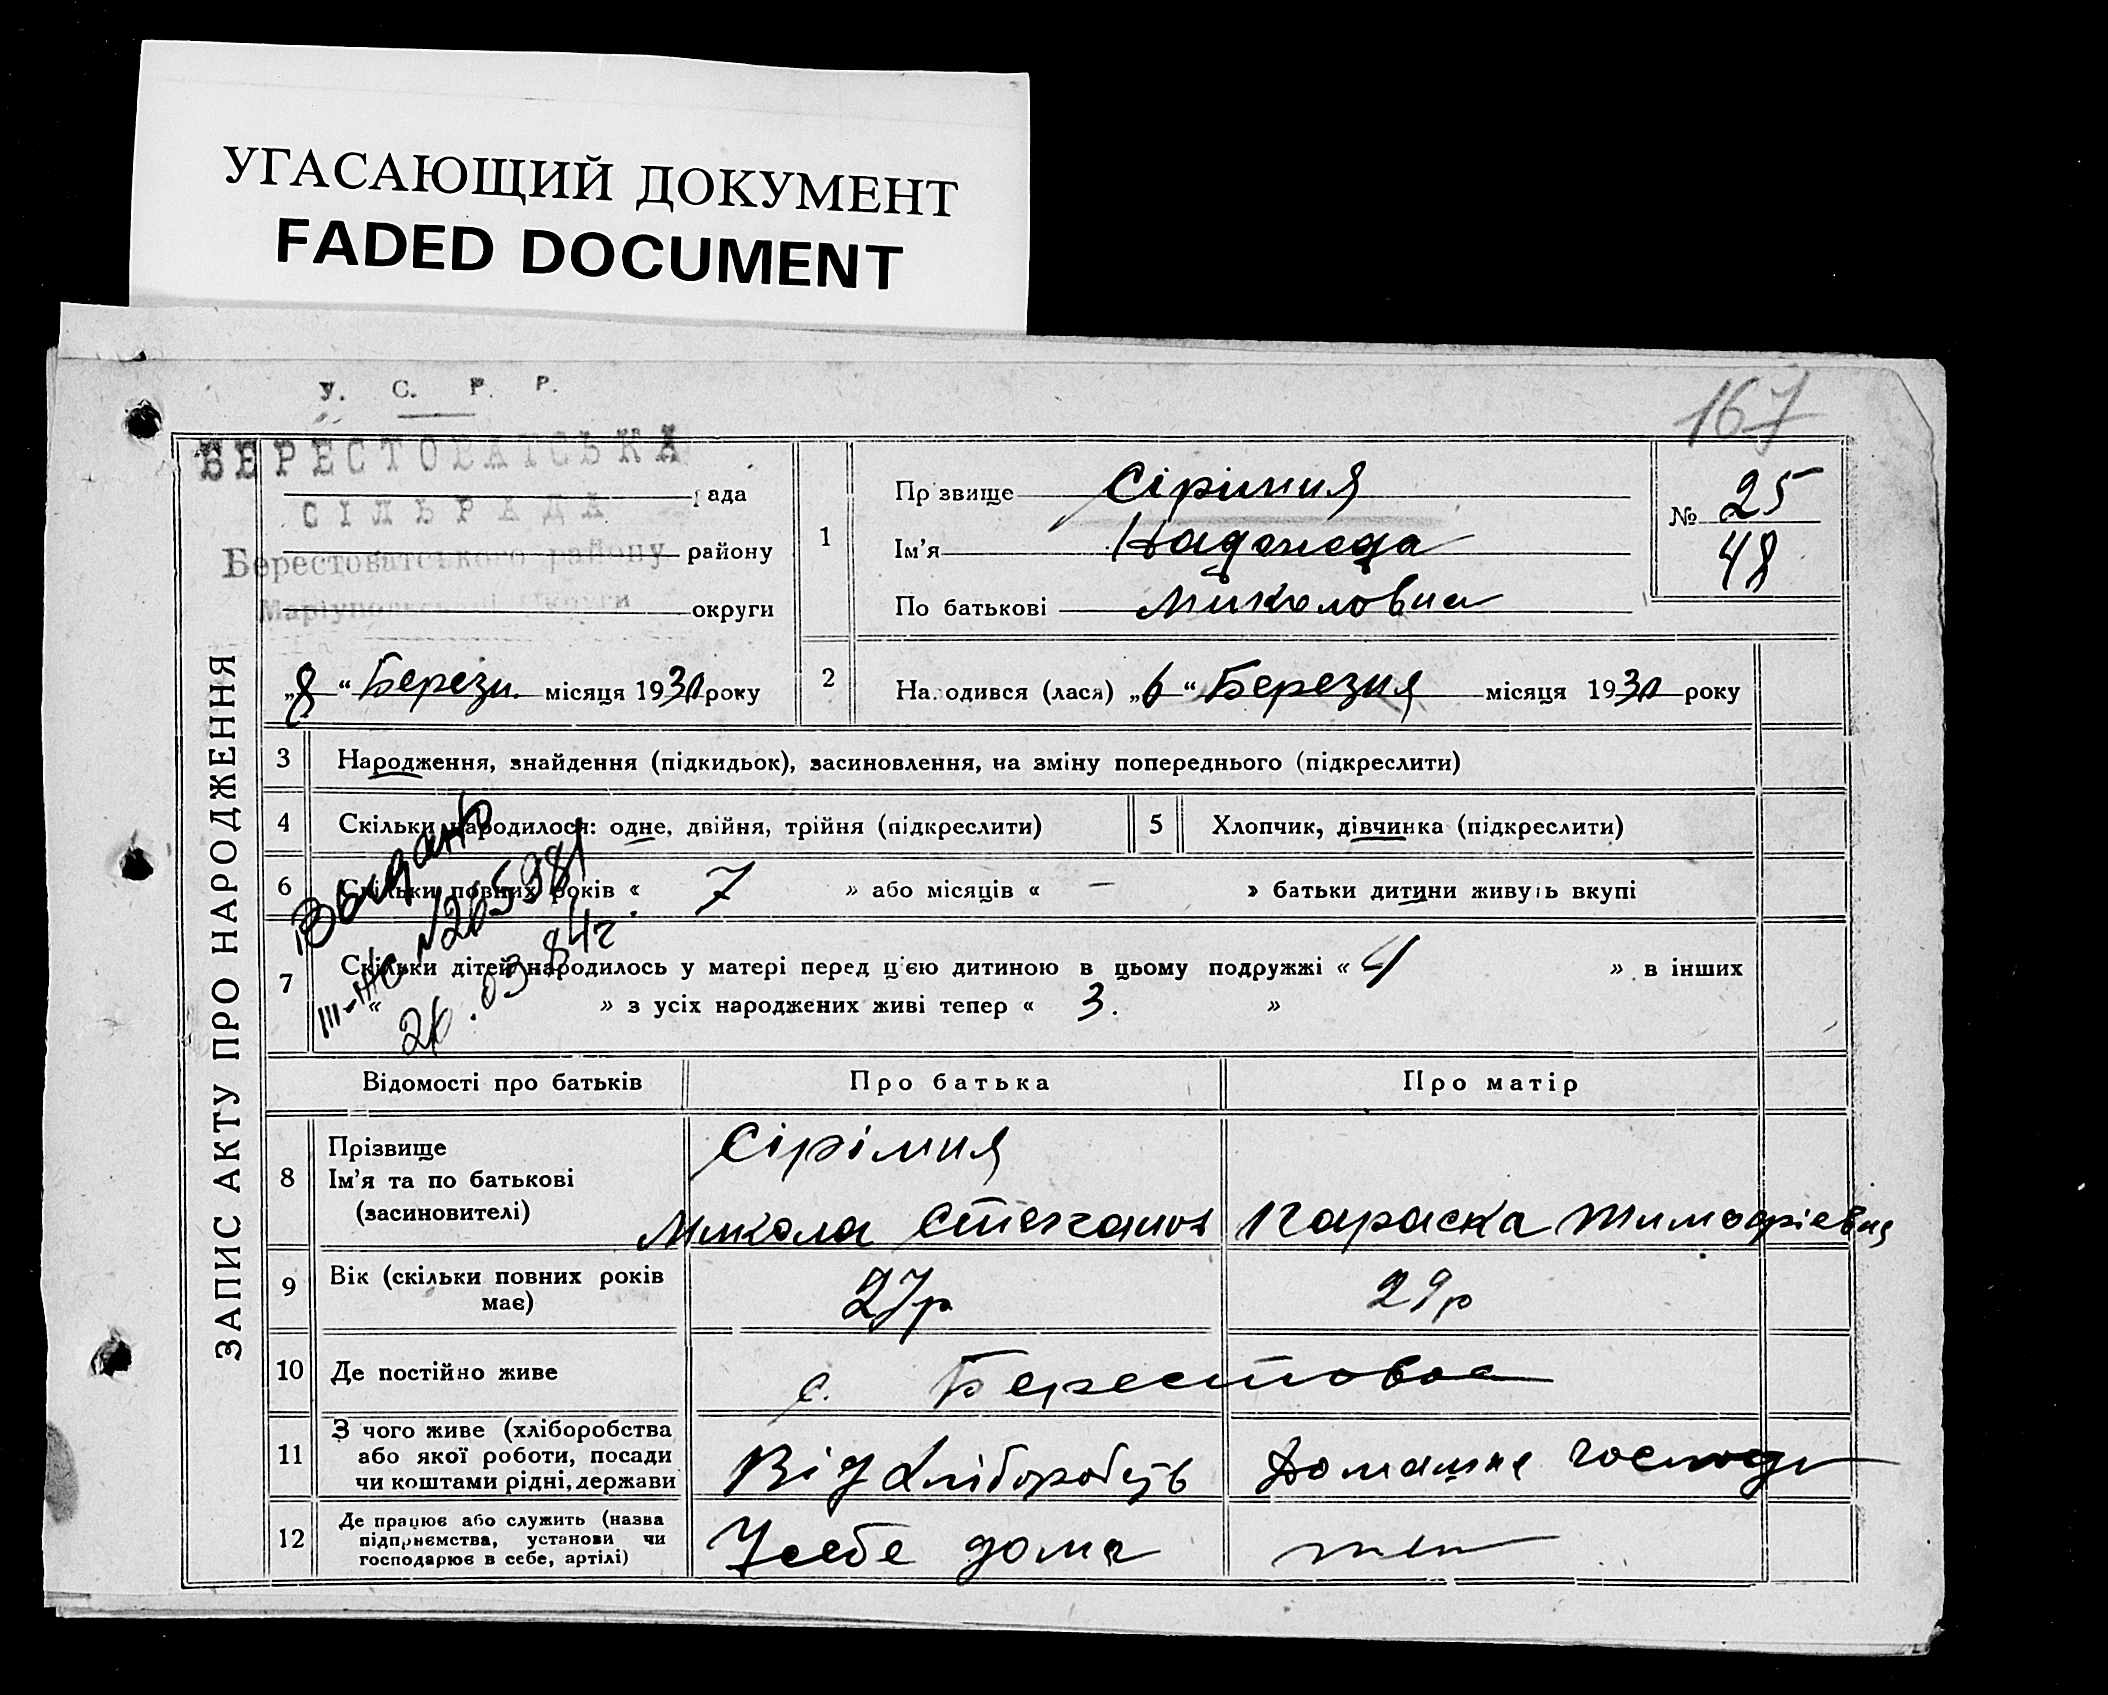 УГАСАЮЩИЙ ДОКУМЕНТ
FADED DOCUMENT
У. С. Р. Р.
167
БЕРЕСТОВАТСЬКА
рада
СІЛЬРАДА
Берестоватського району
району
Маріупольської округи
округи
„8“ Березн. місяця 1930 року
ЗАПИС АКТУ ПРО НАРОДЖЕННЯ
1
Прізвище Сірімия
Ім'я Надежда
По батькові Миколовна
№ 25
48
2
Народився (лася) „6“ Березня місяця 1930 року
3 Народження, знайдення (підкидьок), засиновлення, на зміну попереднього (підкреслити)
4 Скільки народилося: одне, двійня, трійня (підкреслити)
5 Хлопчик, дівчинка (підкреслити)
6 Скільки повних років « 7 » або місяців « — » батьки дитини живуть вкупі
7 Скільки дітей народилось у матері перед цією дитиною в цьому подружжі « 4 » в інших
« » з усіх народжених живі тепер « 3. »
Выдано
III-ЖС №205981
26.03.84г
Відомості про батьків
Про батька
Про матір
8 Прізвище
Ім'я та по батькові
(засиновителі)
Сірімия
Микола Степанов
Параска Тимофієвна
9 Вік (скільки повних років
має)
27р
29р
10 Де постійно живе
с. Берестовое
11 З чого живе (хліборобства
або якої роботи, посади
чи коштами рідні, держави
Від хліборобств
Домашне господ
12 Де працює або служить (назва
підприємства, установи чи
господарює в себе, артілі)
У себе дома